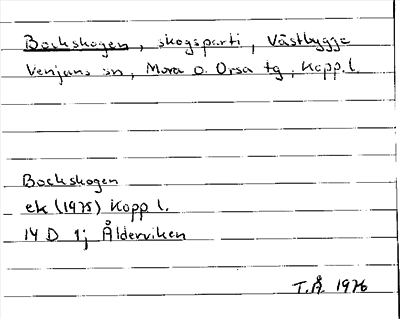 Bockskogen, skogsparti, Västbygge
Venjans sn, Mora o. Orsa tg, Kopp.l.
Bockskogen
ek (1975) Kopp l.
14 D 1j Ålderviken
T.Å. 1976